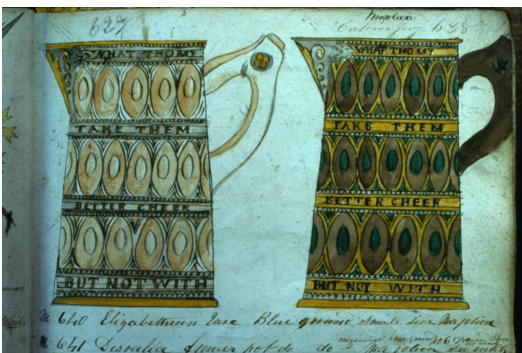 627
Majolica
648
WHAT THO MY
TAKE THEM
BETTER CHEER
BUT NOT WITH
WHAT THO MY
TAKE THEM
BETTER CHEER
BUT NOT WITH
M 640 Elizabethian Vase Blue ground small size Majolica
M 641 Disralia flower pot do do Majolica